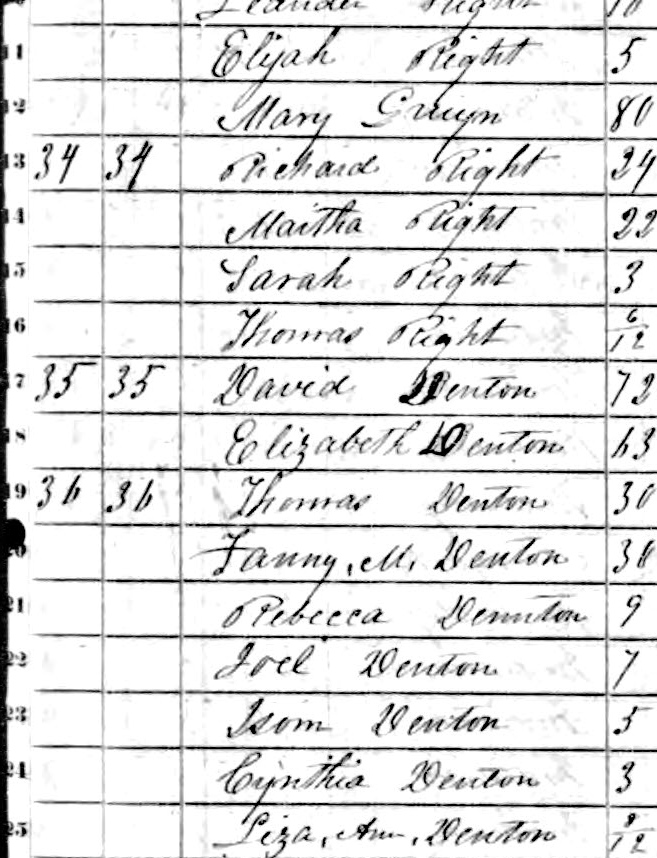 Leander Right 10
11 Elijah Right 5
12 Mary Gruyn 80
13 34 34 Richard Right 24
14 Martha Right 22
15 Sarah Right 3
16 Thomas Right 6/12
17 35 35 David Denton 72
18 Elizabeth Denton 63
19 36 36 Thomas Denton 30
20 Fanny, M, Denton
21 Rebecca Dennton 9
22 Joel Denton 7
23 Isom Denton 5
24 Cynthia Denton 3
25 Liza, Ann, Denton 8/12